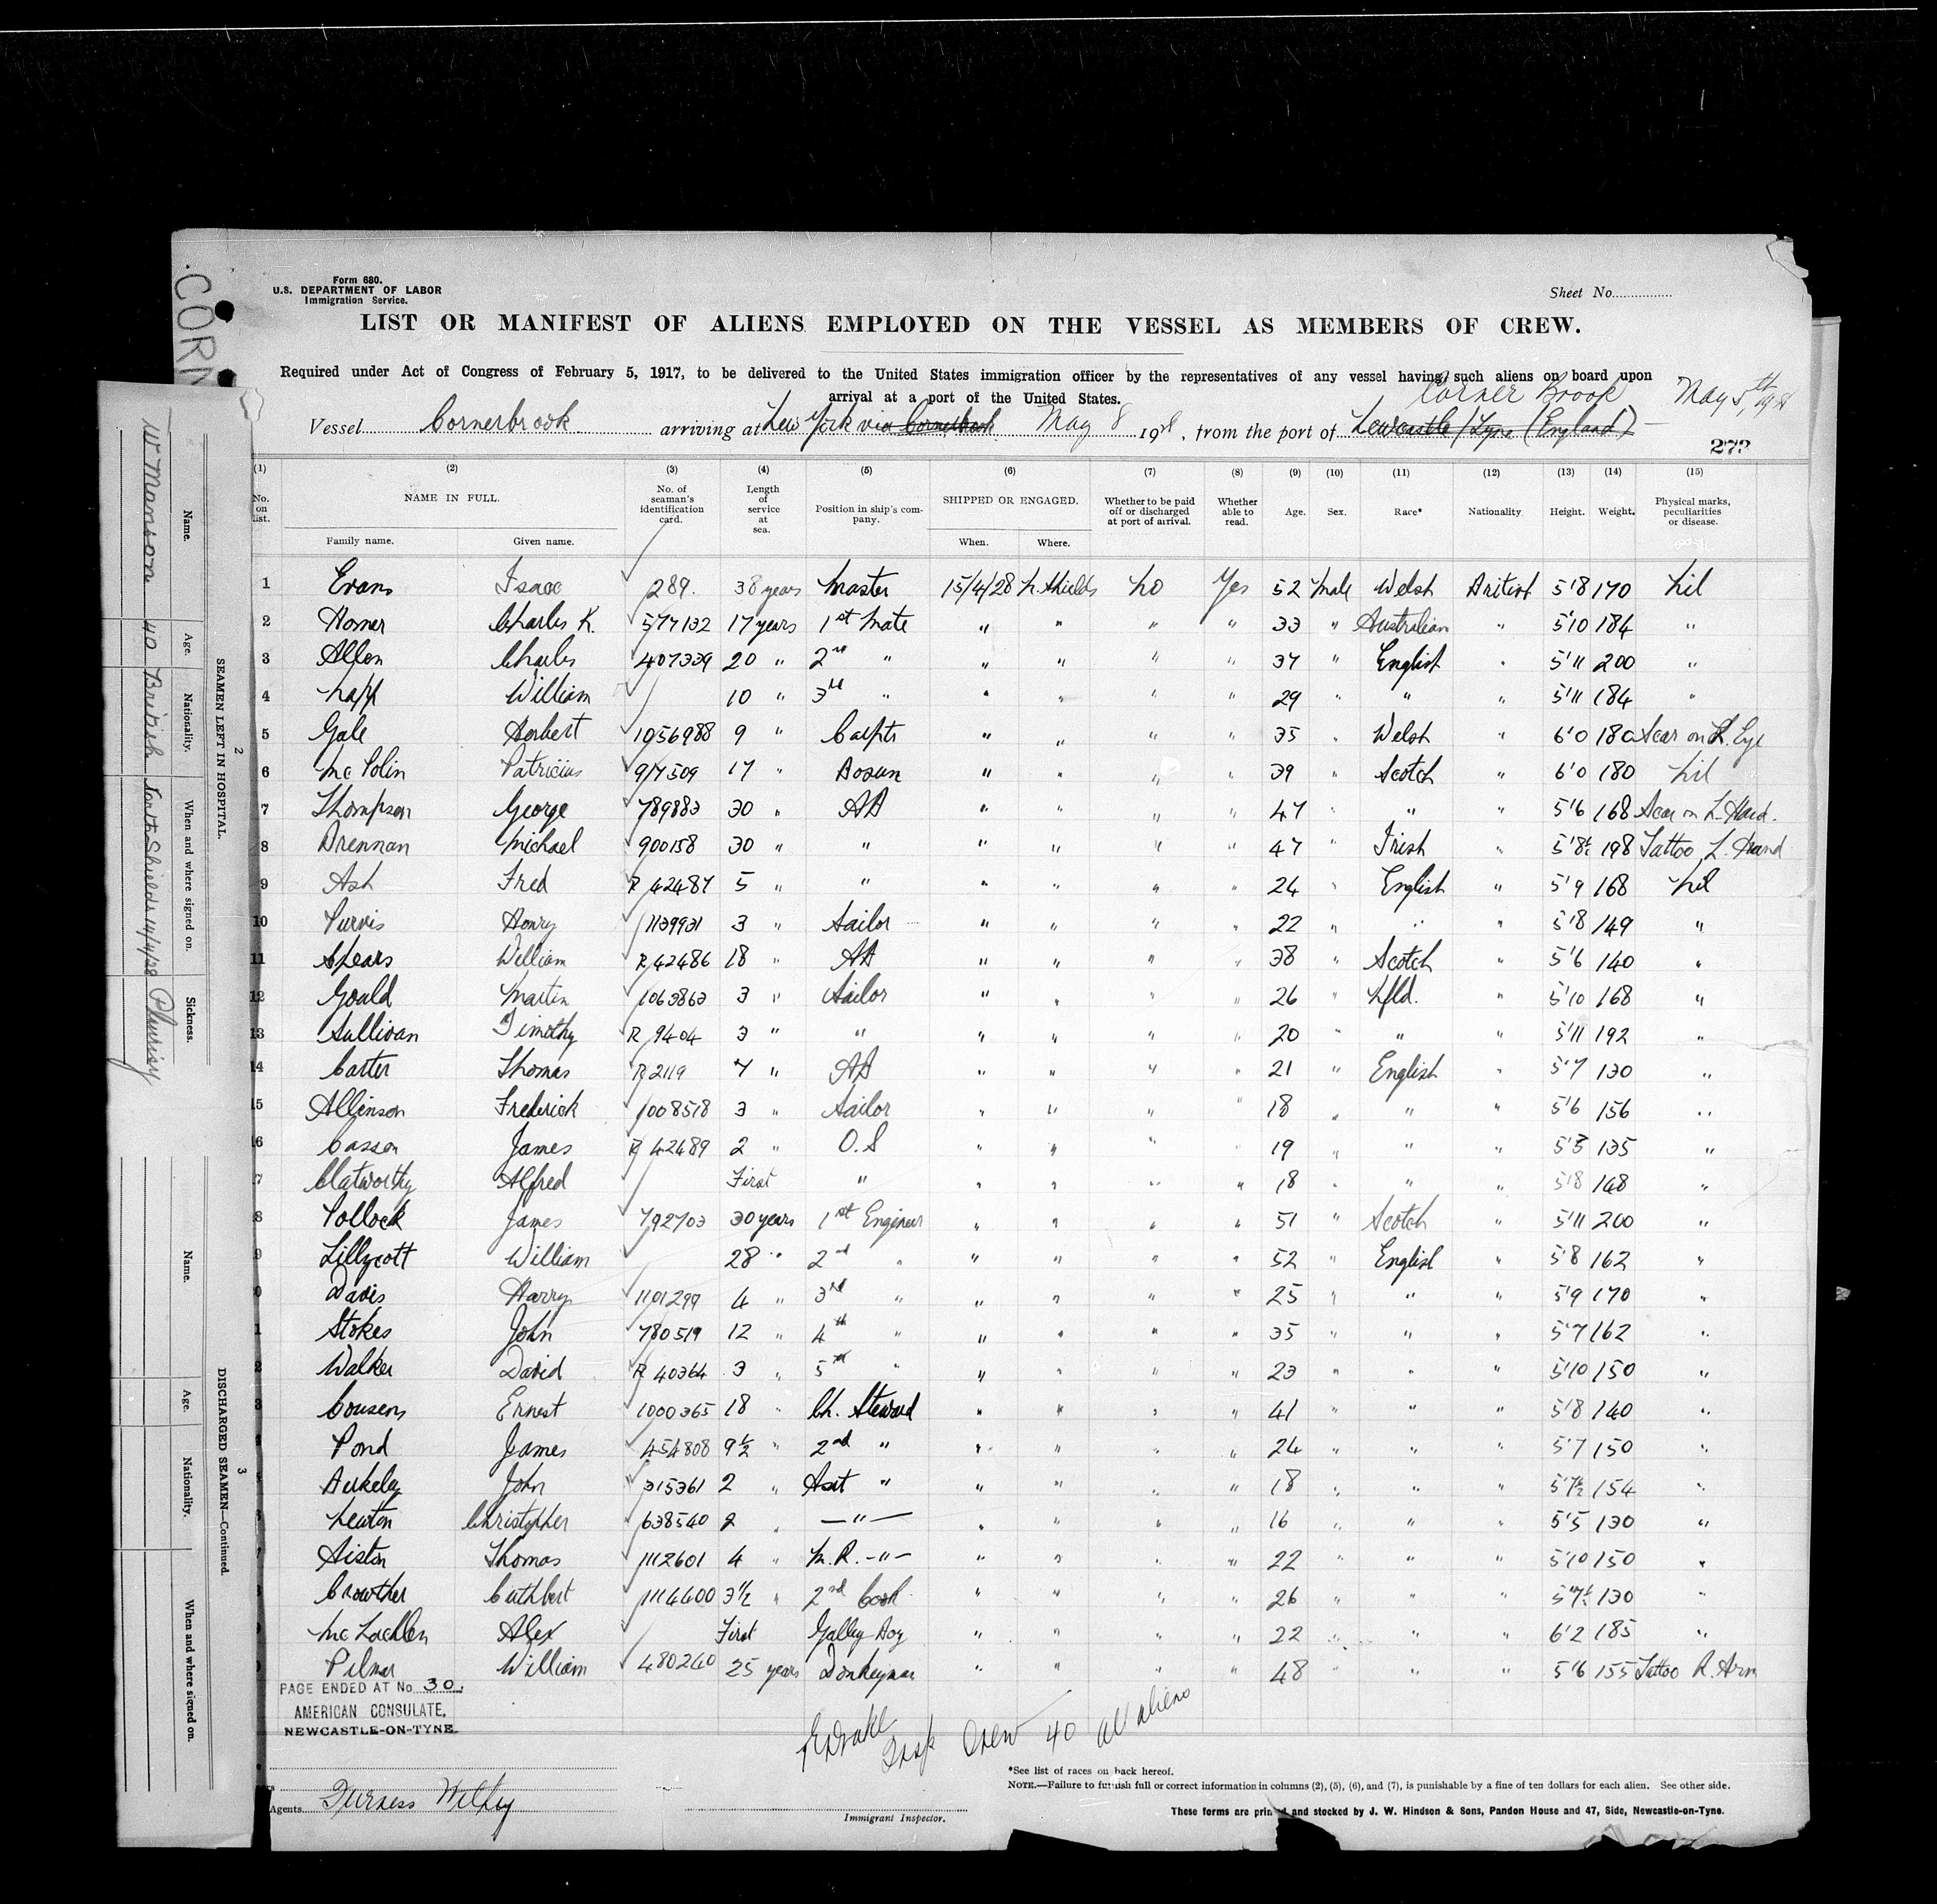 CORN
Form 680.
U.S. DEPARTMENT OF LABOR
Immigration Service.
Sheet No
LIST OR MANIFEST OF ALIENS EMPLOYED ON THE VESSEL AS MEMBERS OF CREW.
Required under Act of Congress of February 5, 1917, to be delivered to the United States immigration officer by the representatives of any vessel having such aliens on board upon
arrival at a port of the United States.
Corner Brook May 5th, 1928
Vessel Cornerbrook arriving at New York via Cornerbrook May 8 1928, from the port of Newcastle/Tyne (England)
273
(1) (2) (3) (4) (5) (6) (7) (8) (9) (10) (11) (12) (13) (14) (15)
No. on list. NAME IN FULL. No. of seaman's identification card. Length of service at sea. Position in ship's company. SHIPPED OR ENGAGED. Whether to be paid off or discharged at port of arrival. Whether able to read. Age. Sex. Race* Nationality. Height. Weight. Physical marks, peculiarities or disease.
Family name. Given name. When. Where.
1 Evans Isaac 289. 38 years Master 15/4/28 N. Shields No Yes 52 Male Welsh British 5'8 170 Nil
2 Homer Charles K. 577132 17 years 1st Mate " " " " 33 " Australian " 5'10 184 "
3 Allen Charles 407339 20 " 2nd " " " " " 37 " English " 5'11 200 "
4 Napp William 10 " 3rd " " " " " 29 " " " 5'11 184 "
5 Gale Herbert 1056988 9 " Carptr " " " " 35 " Welsh " 6'0 180 Scar on R. Eye
6 McPolin Patricius 917509 17 " Bosun " " " " 39 " Scotch " 6'0 180 Nil
7 Thompson George 789883 30 " AB " " " " 47 " " " 5'6 168 Scar on L. Hand.
8 Brennan Michael 900158 30 " " " " " " 47 " Irish " 5'8½ 198 Tattoo L. Hand
9 Ash Fred R 42487 5 " " " " " " 24 " English " 5'9 168 Nil
10 Purvis Henry 1139931 3 " Sailor " " " " 22 " " " 5'8 149 "
11 Spears William R 42486 18 " AB " " " " 38 " Scotch " 5'6 140 "
12 Gould Martin 1063863 3 " Sailor " " " " 26 " Nfld. " 5'10 168 "
13 Sullivan Timothy R 9404 3 " " " " " " 20 " " " 5'11 192 "
14 Carter Thomas R 2119 7 " AB " " " " 21 " English " 5'7 130 "
15 Allinson Frederick 1008518 3 " Sailor " " " " 18 " " " 5'6 156 "
6 Casson James R 42489 2 " O.S " " " " 19 " " " 5'3 135 "
7 Clatworthy Alfred First " " " " " 18 " " " 5'8 148 "
8 Pollock James 792703 30 years 1st Engineer " " " " 51 " Scotch " 5'11 200 "
9 Lillycott William 28 " 2nd " " " " " 52 " English " 5'8 162 "
0 Davis Harry 1101299 4 " 3rd " " " " " 25 " " " 5'9 170 "
1 Stokes John 780519 12 " 4th " " " " " 35 " " " 5'7 162 "
2 Walker David R 40364 3 " 5th " " " " " 23 " " " 5'10 150 "
3 Cousens Ernest 1000365 18 " Ch. Steward " " " " 41 " " " 5'8 140 "
Pond James 454808 9½ " 2nd " " " " " 24 " " " 5'7 150 "
John 315361 2 " Asst " " " " " 18 " " " 5'7½ 154 "
Christopher 638540 2 " — " — " " " " 16 " " " 5'5 130 "
Aiston Thomas 1112601 4 " M.R. - " - " " " " 22 " " " 5'10 150 "
Crowther Cuthbert 1114600 3½ " 2nd Cook " " " " 26 " " " 5'7½ 130 "
McLachlen Alex First Galley Boy " " " " 22 " " " 6'2 185 "
William 480240 25 years Donkeyman " " " " 48 " " " 5'6 155 Tattoo R. Arm
PAGE ENDED AT No. 30.
AMERICAN CONSULATE,
NEWCASTLE-ON-TYNE.
Insp Crew 40 all aliens
Agents. Furness Withy
Immigrant Inspector.
*See list of races on back hereof.
NOTE.—Failure to furnish full or correct information in columns (2), (5), (6), and (7), is punishable by a fine of ten dollars for each alien. See other side.
These forms are printed and stocked by J. W. Hindson & Sons, Pandon House and 47, Side, Newcastle-on-Tyne.
2
SEAMEN LEFT IN HOSPITAL.
Name. Age. Nationality. When and where signed on. Sickness.
W Manson 40 British North Shields 14/4/28 Plurisy
3
DISCHARGED SEAMEN—Continued.
Name. Age. Nationality. When and where signed on.